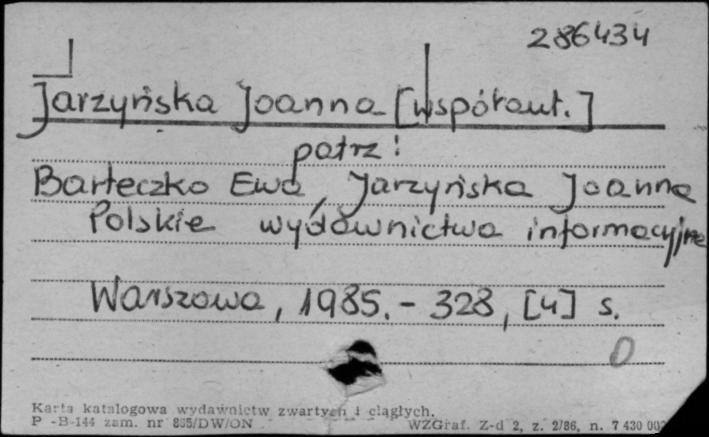 286434
Jarzyńska Joanna [współaut.]
patrz:
Barteczko Ewa, Jarzyńska Joanna
Polskie wydawnictwa informacyjne
Warszawa, 1985. - 328, [4] s.
0
Karta katalogowa wydawnictw zwartych i ciągłych.
P-B-144 zam. nr 835/DW/ON WZGraf. Z-d 2, z. 2/86, n. 7 430 00